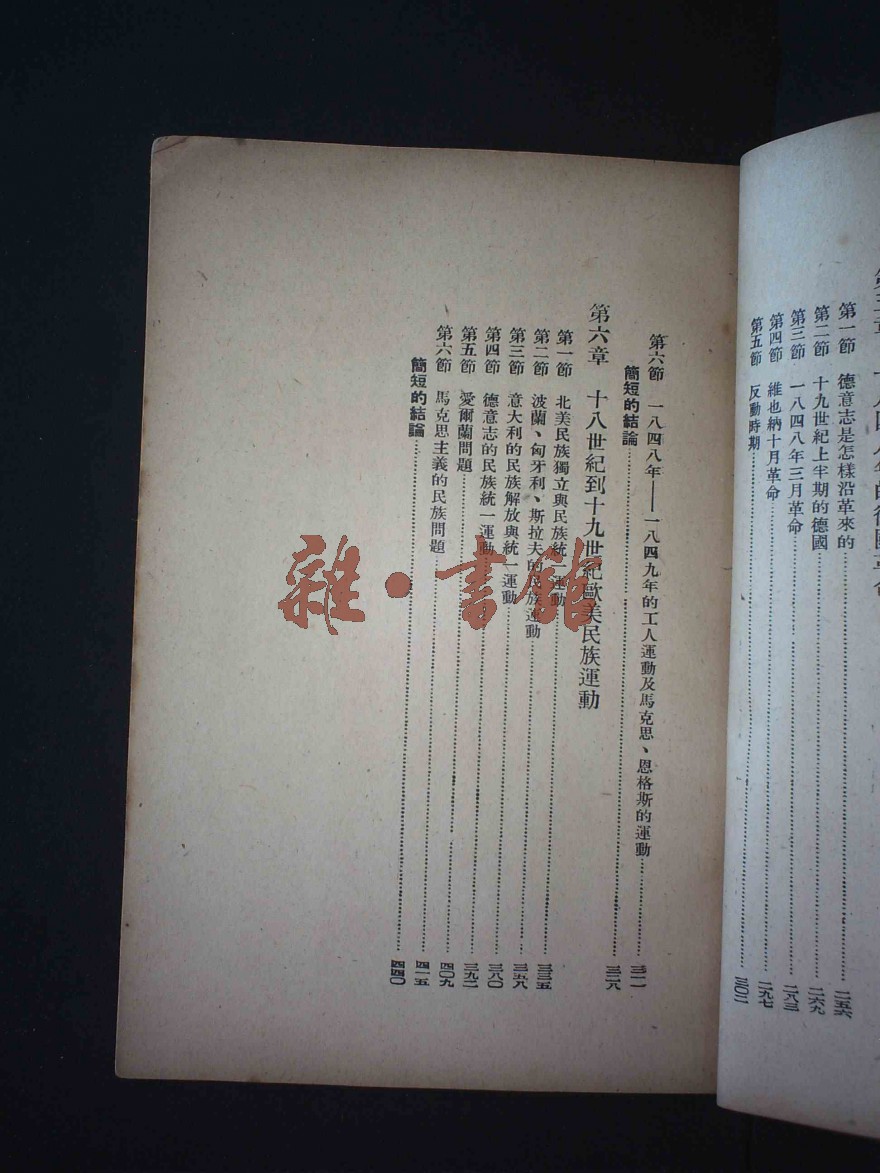 第一節 德意志是怎樣沿革來的……二五六
第二節 十九世紀上半期的德國……二六九
第三節 一八四八年三月革命……二八三
第四節 維也納十月革命……二九七
第五節 反動時期……三〇二
第六節 一八四八年——一八四九年的工人運動及馬克思、恩格斯的運動……三一一
簡短的結論……三二八
第六章 十八世紀到十九世紀歐美民族運動
第一節 北美民族獨立與民族統一運動……三三五
第二節 波蘭、匈牙利、斯拉夫的民族運動……三五八
第三節 意大利的民族解放與統一運動……三八〇
第四節 德意志的民族統一運動……三九二
第五節 愛爾蘭問題……四〇九
第六節 馬克思主義的民族問題……四一五
簡短的結論……四四〇
雜·書館